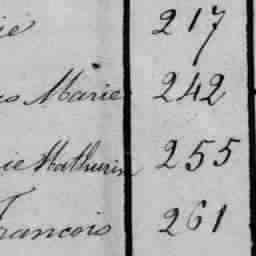 ie 217
es Marie 242
ie Mathurin 255
francois 261